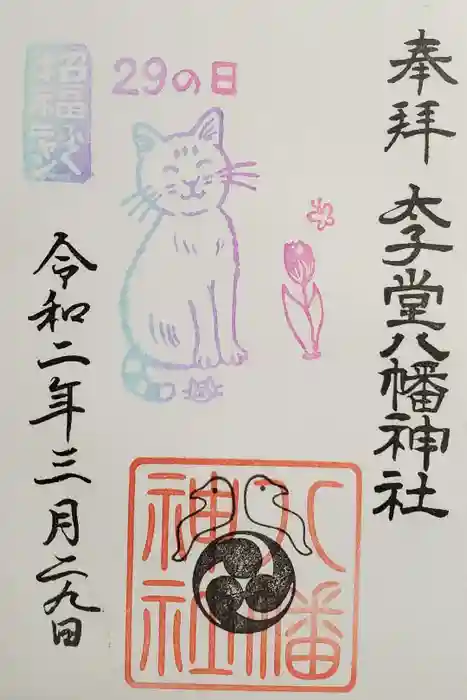 奉拝
太子堂八幡神社
29の日
招福
令和二年三月二九日
八幡
神社